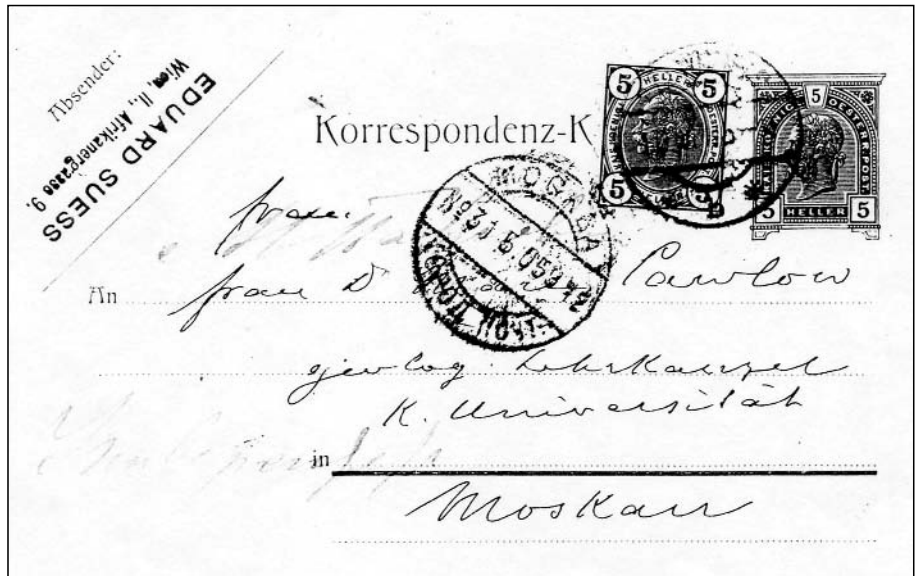 Absender:
EDUARD SUESS
Wien, II., Afrikanergasse 9.
Korrespondenz-K
5 HELLER 5
5 5
5
KAIS. KOENIGL. OESTERR. POST
5 HELLER 5
МОСКВА
31 5 05
ПОЧТ
frau
An frau D Pawlow
geolog. Lehrkanzel
K. Universität
in
Moskau